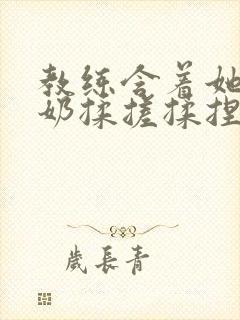 教练含着她
奶揉搓揉捏
岁長青